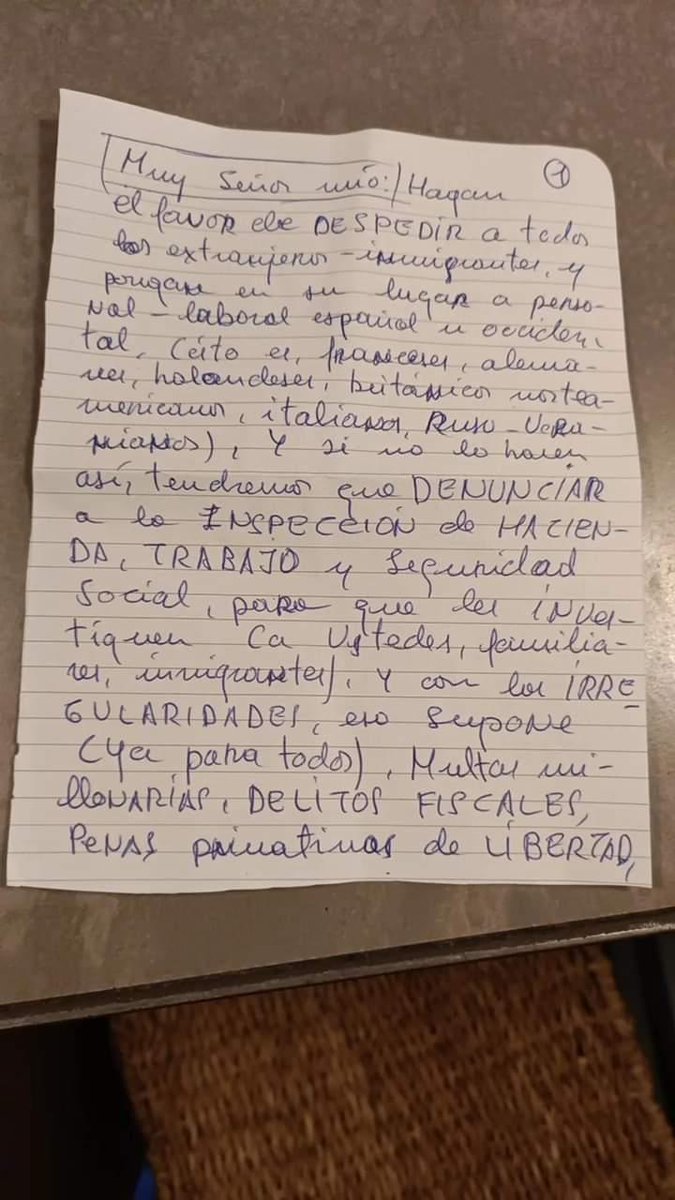 Muy Señor mío:/ Hagan ①
el favor de DESPEDIR a todos
los extranjeros-inmigrantes, y
pongan en su lugar a perso-
nal-laboral español u occiden,
tal, (ésto es, franceses, alema-
nes, holandeses, británicos nortea-
mericanos, italianos, Ruso-Ucra-
nianos), Y si no lo hacen
así, tendremos que DENUNCIAR
a la INSPECCIÓN de HACIEN-
DA, TRABAJO y Seguridad
Social, para que les inves-
tiguen (a Ustedes, familia-
res, inmigrantes), Y con las IRRE-
GULARIDADES, eso supone
(Ya para todos), Multas mi-
llonarias, DELITOS FISCALES,
PENAS privativas de LIBERTAD,